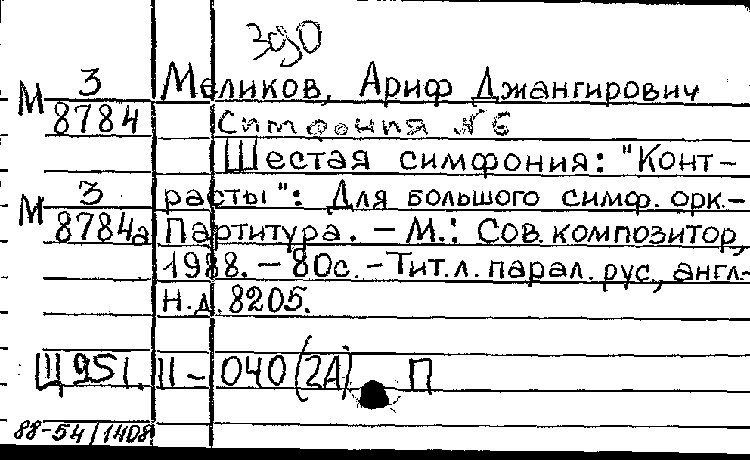 З090
М З Меликов, Ариф Джангирович
8784 Симфония №6
Шестая симфония: "Конт-
М З расты": Для большого симф. орк.-
8784а Партитура. - М.: Сов. композитор,
1988. - 80с. - Тит. л. парал. рус., англ.-
Н.д. 8205.
Щ951.11-040(2А) П
88-54/1408